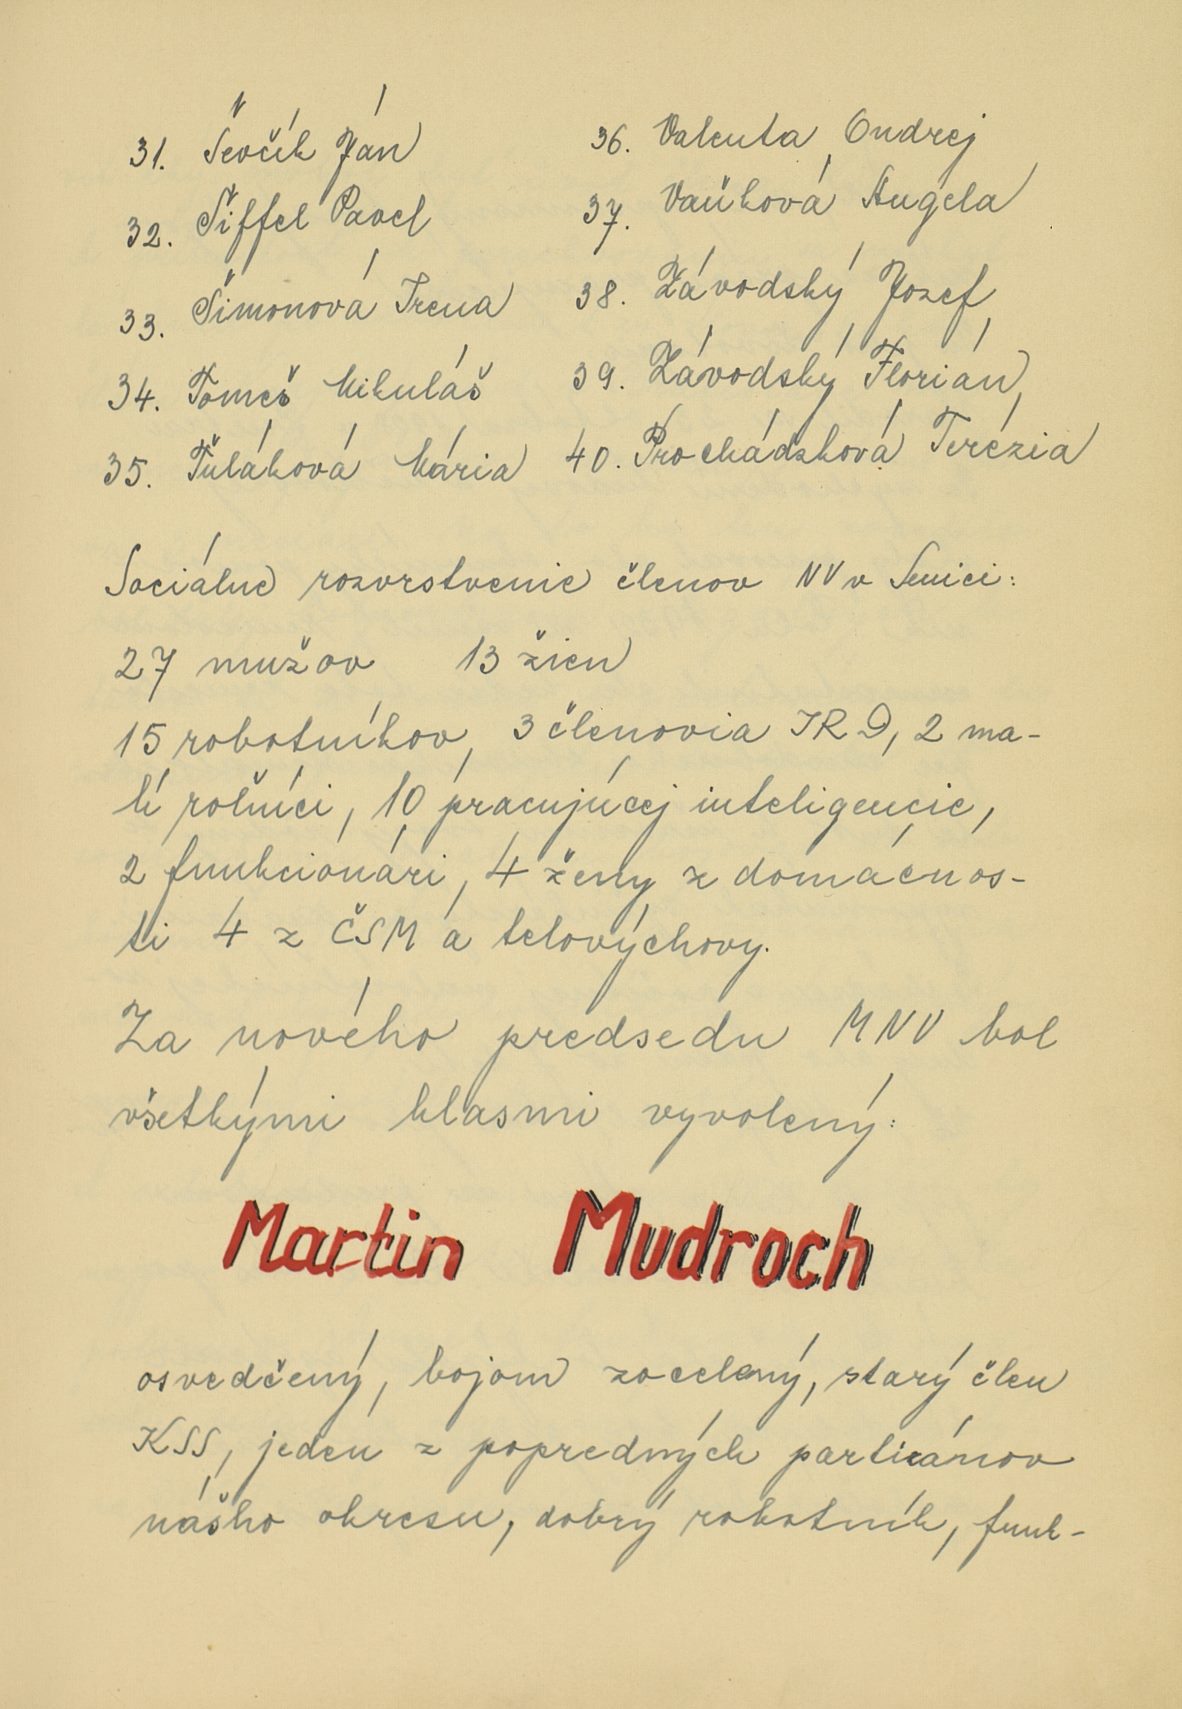 31. Ševčík Ján
32. Šiffel Pavel
33. Šimonová Irena
34. Tomeš Mikuláš
35. Ťuláková Mária
36. Valenta Ondrej
37. Vaňková Angela
38. Závodský Jozef
39. Závodský Florián
40. Procházková Terézia
Sociálne rozvrstvenie členov NV v Senici:
27 mužov 13 žien
15 robotníkov, 3 členovia JRD, 2 ma-
lí roľníci, 10 pracujúcej inteligencie,
2 funkcionári, 4 ženy z domácnos-
ti 4 z ČSM a telovýchovy.
Za nového predsedu MNV bol
všetkými hlasmi vyvolený:
Martin Mudroch
osvedčený, bojom zocelený, starý člen
KSS, jeden z popredných partizánov
nášho okresu, dobrý robotník, funk-